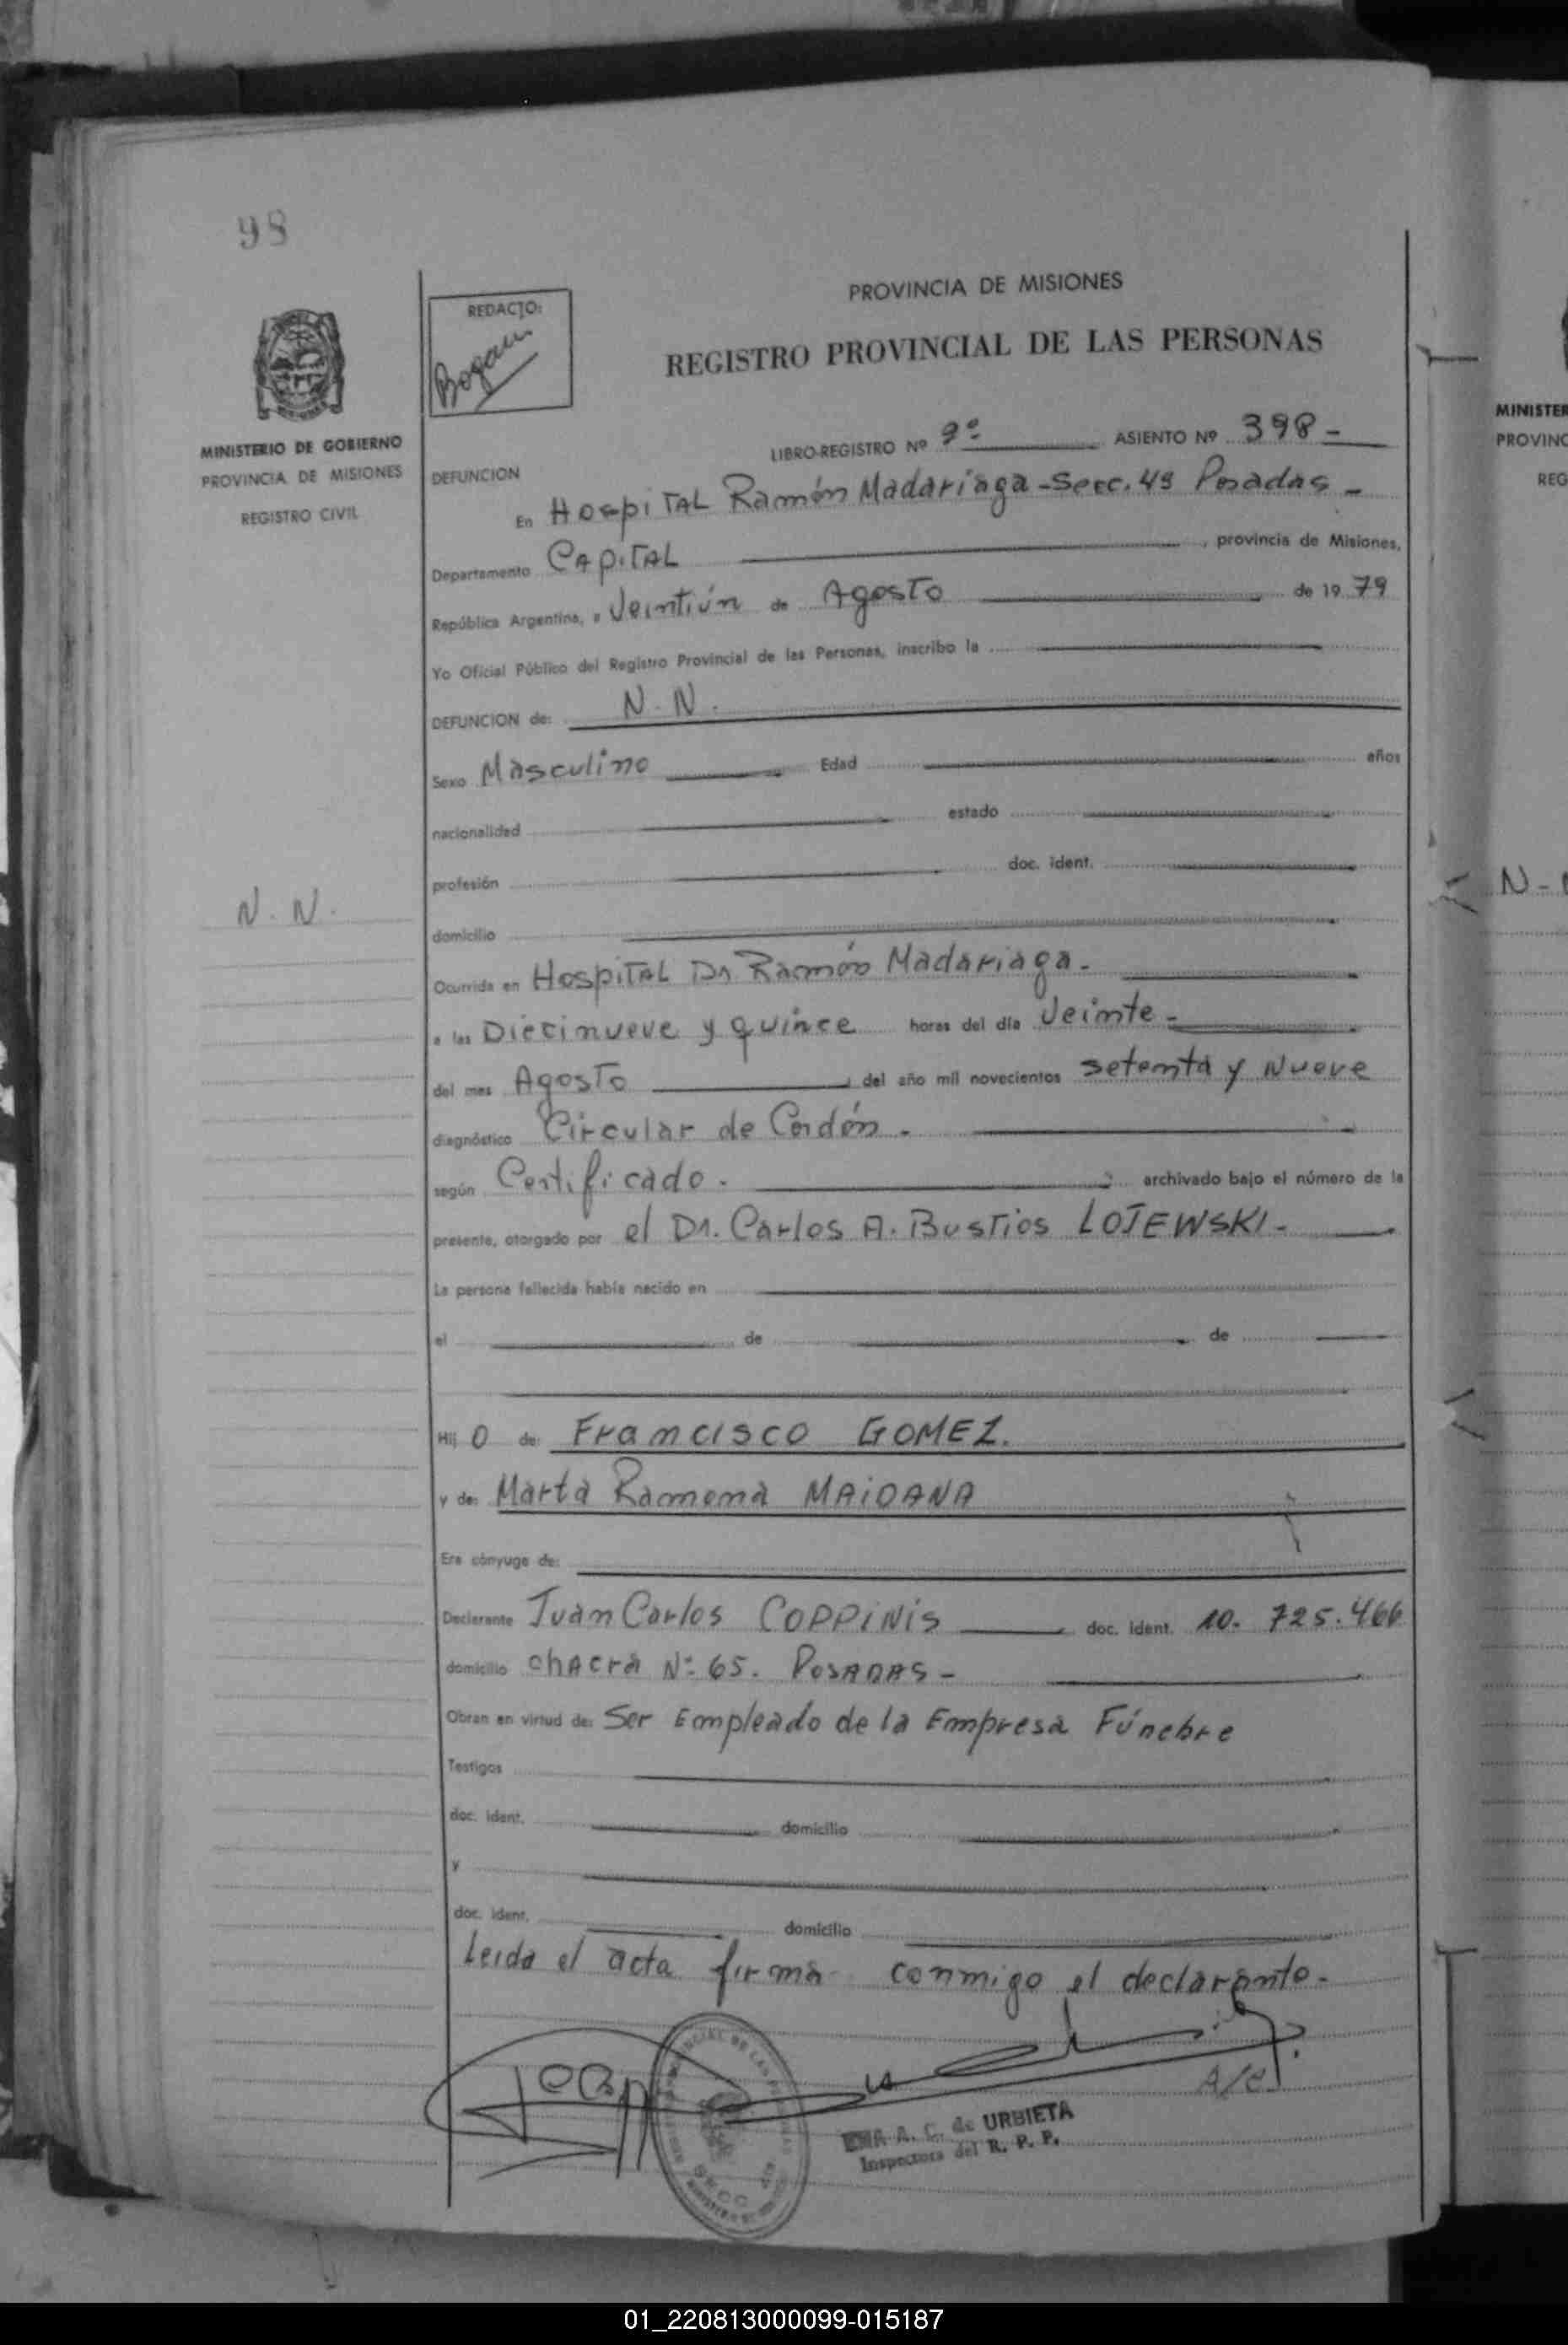 98
PROVINCIA DE MISIONES
REDACTO:
REGISTRO PROVINCIAL DE LAS PERSONAS
MINISTERIO DE GOBIERNO
PROVINCIA DE MISIONES
REGISTRO CIVIL
LIBRO-REGISTRO Nº 9º ASIENTO Nº 398-
DEFUNCION
En Hospital Ramón Madariaga-Secc. 4ª Posadas-
Departamento CAPITAL , provincia de Misiones,
República Argentina, a Veintiún de Agosto de 1979
Yo Oficial Público del Registro Provincial de las Personas, inscribo la
DEFUNCION de: N. N.
Sexo Masculino Edad años
nacionalidad estado
profesión doc. ident.
N. N.
domicilio
Ocurrida en Hospital Dr Ramón Madariaga.
a las Diecinueve y quince horas del día Veinte-
del mes Agosto del año mil novecientos setenta y Nueve
diagnóstico Circular de Cordón.
según Certificado. archivado bajo el número de la
presente, otorgado por el Dr. Carlos A. Bustios LOJEWSKI-
La persona fallecida había nacido en
el de de
Hij O de: Francisco GOMEZ.
y de: Marta Ramona MAIDANA
Era cónyuge de:
Declarante Juan Carlos COPPINIS doc. ident. 10. 725.466
domicilio chacra Nº 65. POSADAS-
Obran en virtud de: Ser Empleado de la Empresa Fúnebre
Testigos
doc. ident. domicilio
y
doc. ident. domicilio
Leida el acta firma conmigo el declarante-
A. C. de URBIETA
Inspectora del R. P. P.
MINISTER
PROVINC
REG
N-
01_220813000099-015187